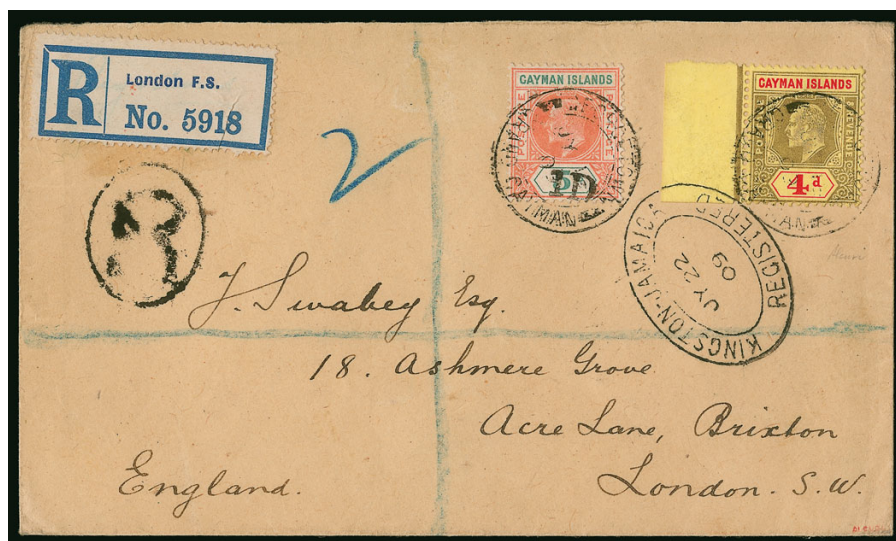 R
London F.S.
No. 5918
2
CAYMAN ISLANDS
1D
CAYMAN ISLANDS
4d
KINGSTON-JAMAICA
REGISTERED
JY 22
09
J. Swabey Esq.
18. Ashmere Grove
Acre Lane, Brixton
London. S.W.
England.